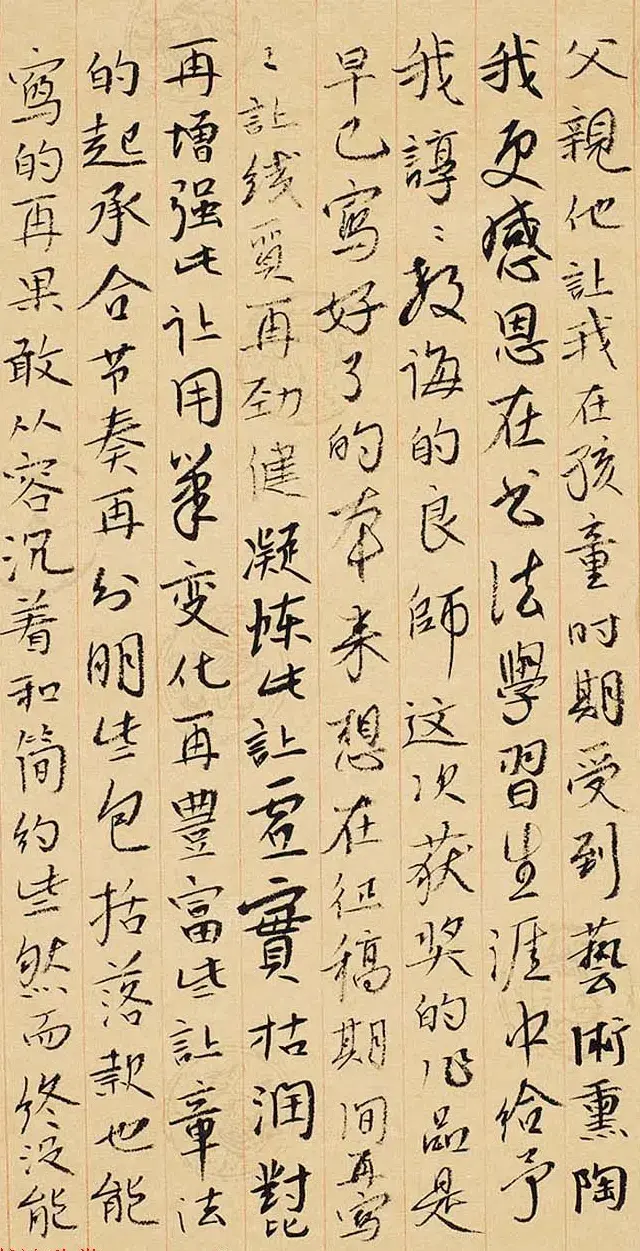 父親他让我在孩童时期受到藝術熏陶
我更感恩在书法學習生涯中给予
我諄〻教诲的良師这次获奖的作品是
早已寫好了的本来想在征稿期间再寫
〻让线質再劲健凝炼些让虚實枯润對比
再增强些让用筆变化再豊富些让章法
的起承合节奏再分明些包括落款也能
寫的再果敢从容沉着和简约些然而终没能